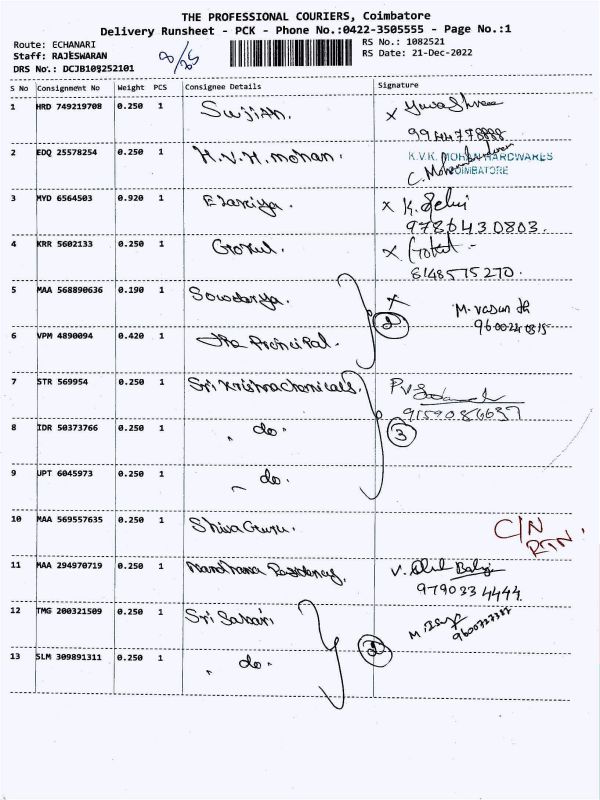 THE PROFESSIONAL COURIERS, Coimbatore
Delivery Runsheet - PCK - Phone No.:0422-3505555 - Page No.:1
Route: ECHANARI
RS No.: 1082521
Staff: RAJESWARAN
RS Date: 21-Dec-2022
DRS No.: DCJB108252101
S No Consignment No Weight PCS Consignee Details Signature
1 HRD 749219708 0.250 1 Sujian. x Yuvashree
2 EDQ 25578254 0.250 1 K.V.K. mohan. K.V.K. MOHAN HARDWARES
COIMBATORE
3 MYD 6564503 0.920 1 Elakiya. x K. Selvi
9786430803.
4 KRR 5602133 0.250 1 Gokul. x Gokul
8148575270.
5 MAA 568890636 0.190 1 Sowdarya. x
6 VPM 4890094 0.420 1 The Principal. 2
7 STR 569954 0.250 1 Sri Krishna chemicals.
9159086637
8 IDR 50373766 0.250 1 " do " 3
9 UPT 6045973 0.250 1 do.
10 MAA 569557635 0.250 1 Shiva Guru. C/N
RTN
11 MAA 294970719 0.250 1 Nandhana Residency.
9790334444.
12 TMG 200321509 0.250 1 Sri Sabari 2
13 SLM 309891311 0.250 1 " do "